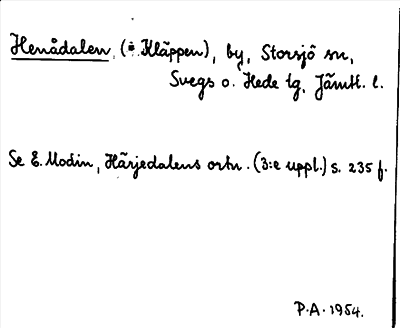 Henådalen, (= Kläppen), by, Storsjö sn,
Svegs o. Hede tg, Jämtl. l.
Se E. Modin, Härjedalens ortn. (3:e uppl.) s. 235 f.
P.A. 1954.